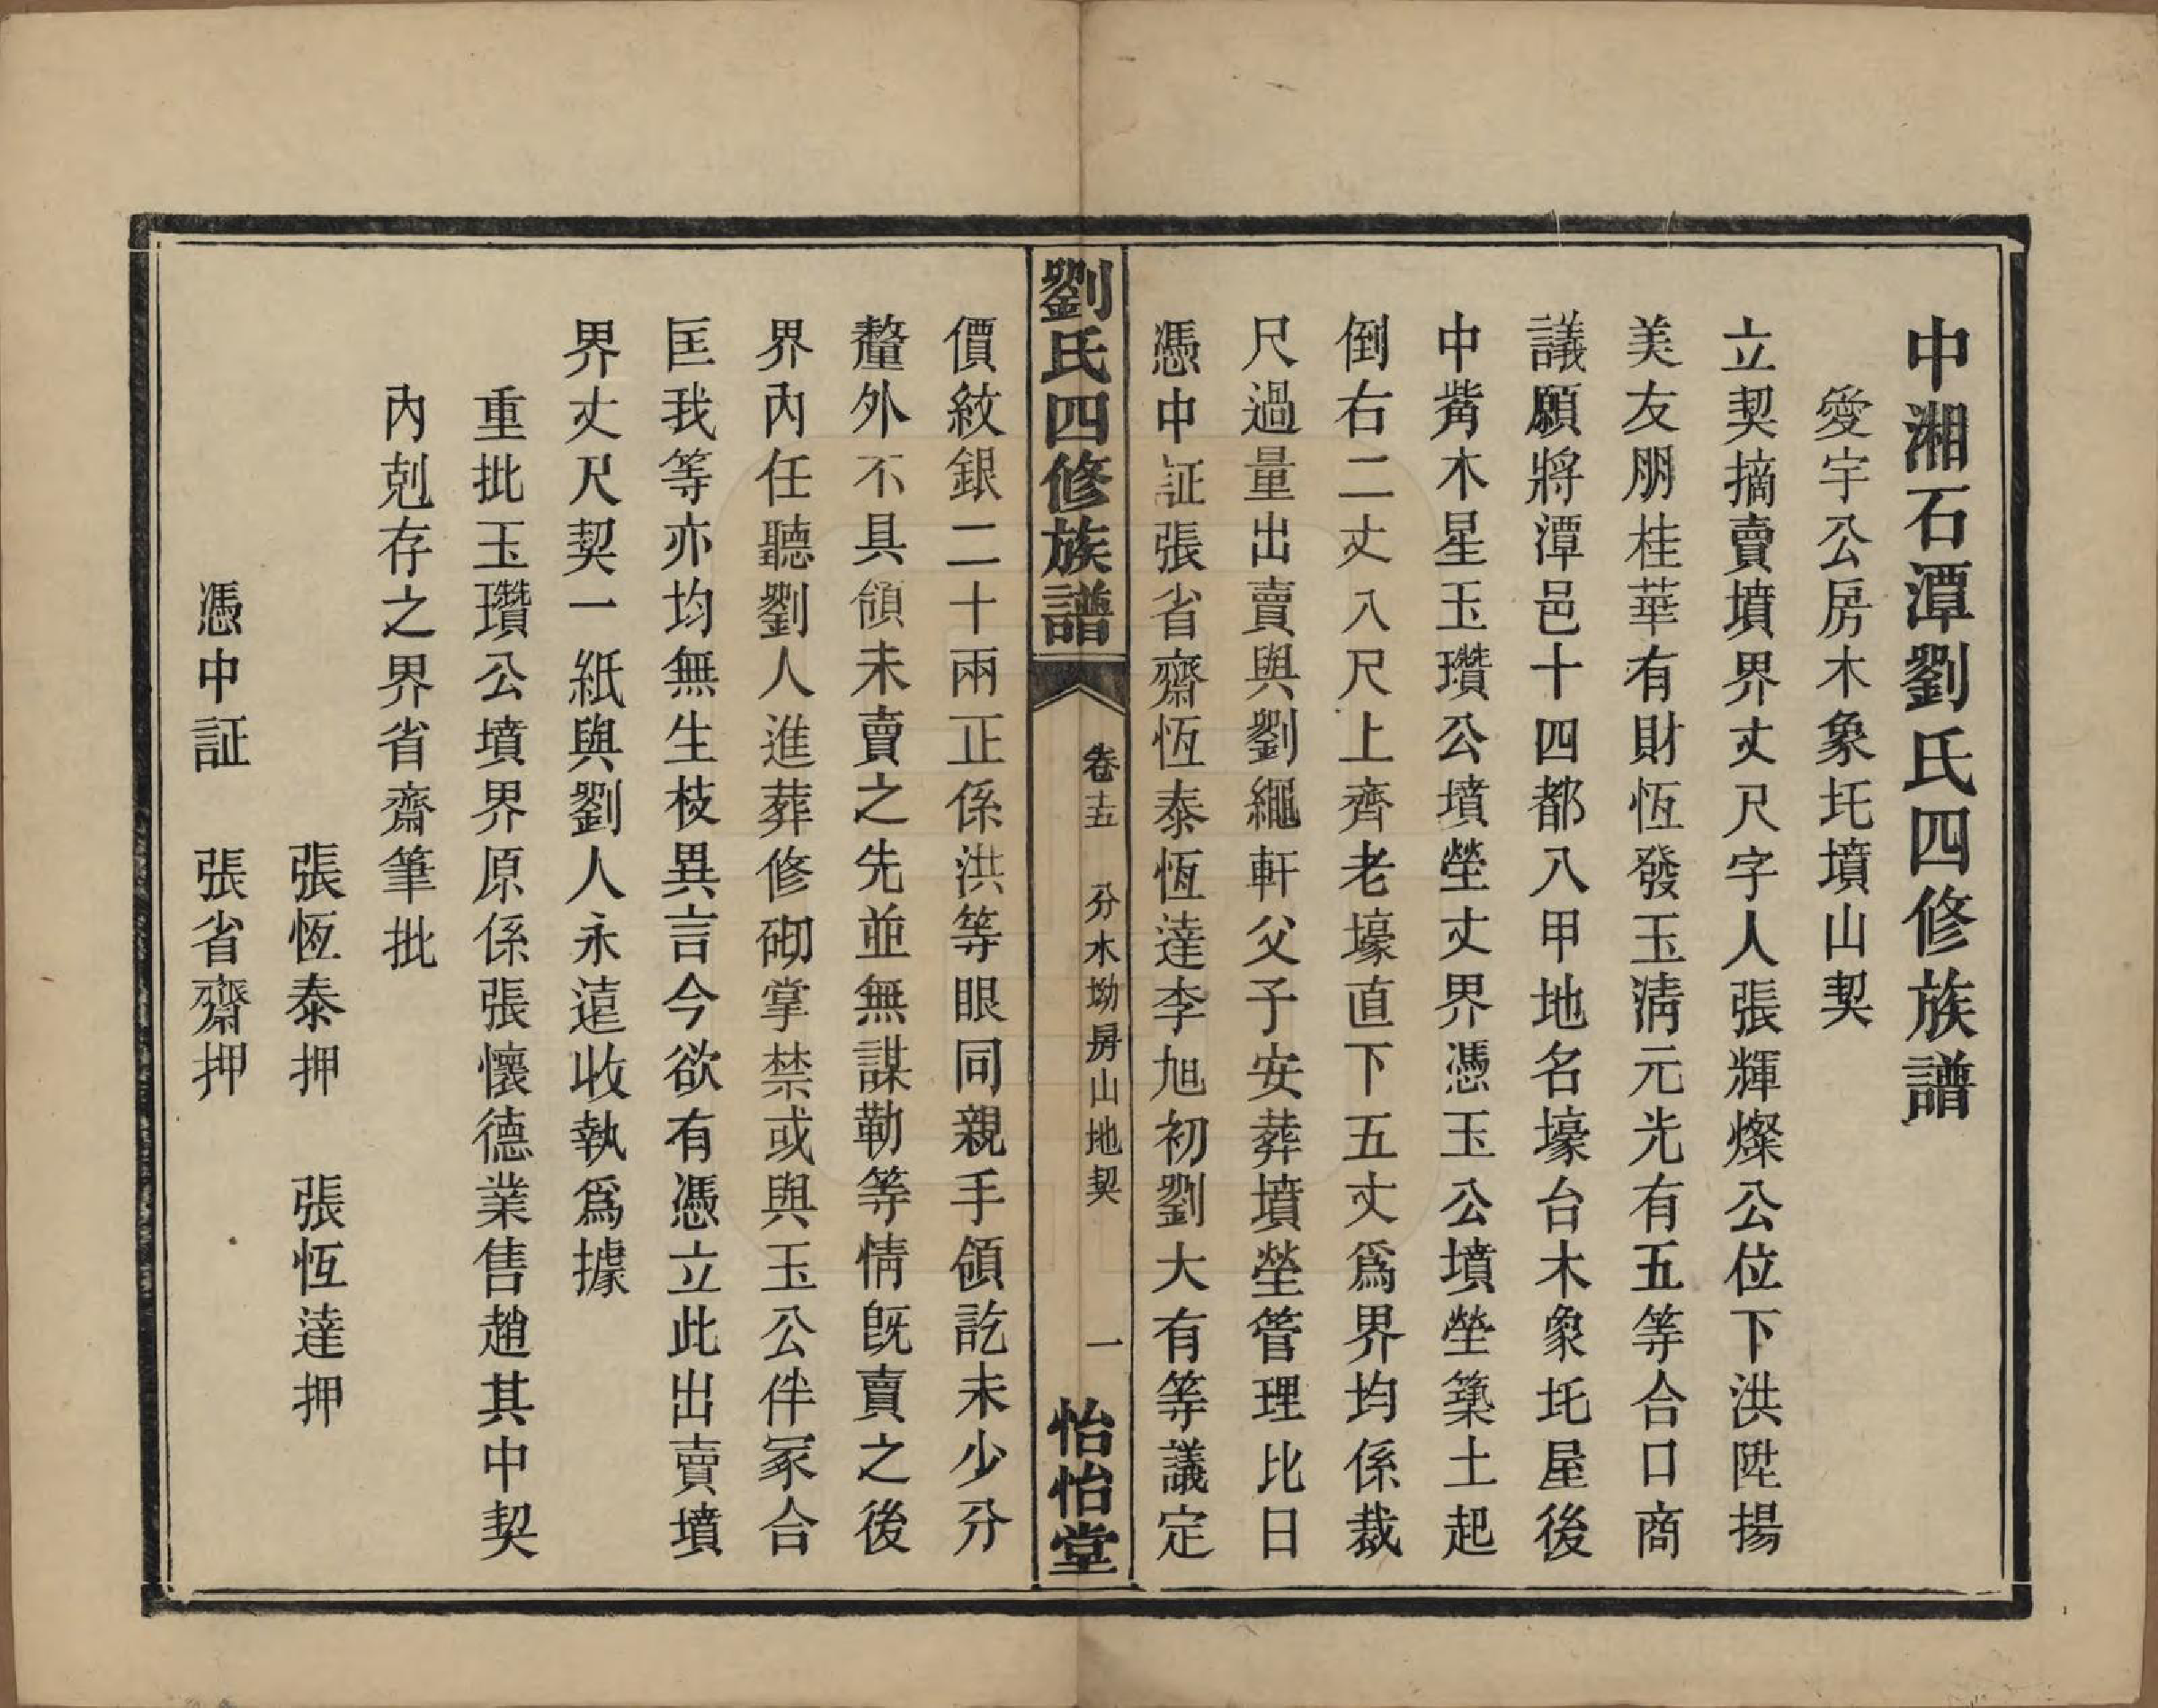 中湘石潭劉氏四修族譜
愛宇公房木象圫墳山契
立契摘賣墳界丈尺字人張輝燦公位下洪陞揚
美友朋桂華有財恆發玉清元光有五等合口商
議願將潭邑十四都八甲地名壕台木象圫屋後
中觜木星玉瓚公墳塋丈界憑玉公墳塋築土起
倒右二丈八尺上齊老壕直下五丈爲界均係裁
尺過量出賣與劉繩軒父子安葬墳塋管理比日
憑中証張省齋恆泰恆達李旭初劉大有等議定
劉氏四修族譜
卷十五 分水坳房山地契
一
怡怡堂
價紋銀二十兩正係洪等眼同親手領訖未少分
釐外不具領未賣之先並無謀勒等情旣賣之後
界內任聽劉人進葬修砌掌禁或與玉公伴冢合
匡我等亦均無生枝異言今欲有憑立此出賣墳
界丈尺契一紙與劉人永遠收執爲據
重批玉瓚公墳界原係張懷德業售趙其中契
內剋存之界省齋筆批
張恆泰押 張恆達押
憑中証 張省齋押